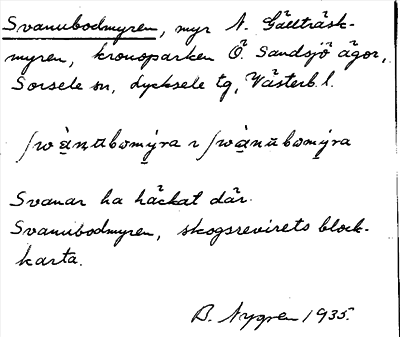 Svanubodmyren, myr N. Gällträsk-
myren, kronoparken Ö. Sandsjö ägor,
Sorsele sn, Lycksele tg, Västerb. l.
ʃwànŭbωmýra ɿ ʃwànŭbωmýra
Svanar ha häckat där.
Svanubodmyren, skogsrevirets block-
karta.
B. Nygren 1935.